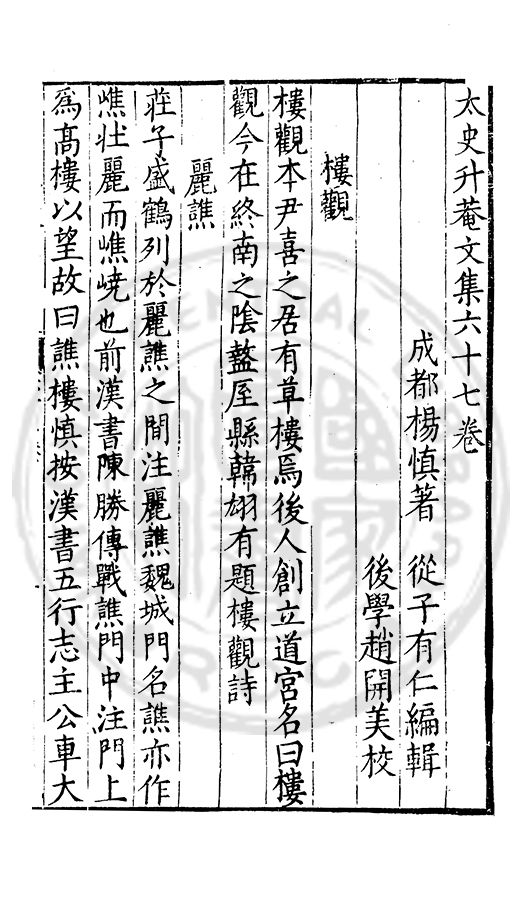 太史升菴文集六十七卷
成都楊慎著 從子有仁編輯
後學趙開美校
樓觀
樓觀本尹喜之居有草樓焉後人創立道宮名曰樓
觀今在終南之陰盩厔縣韓翃有題樓觀詩
麗譙
莊子盛鶴列於麗譙之閒注麗譙魏城門名譙亦作
嶕壯麗而嶕嶢也前漢書陳勝傳戰譙門中注門上
爲高樓以望故曰譙樓慎按漢書五行志主公車大